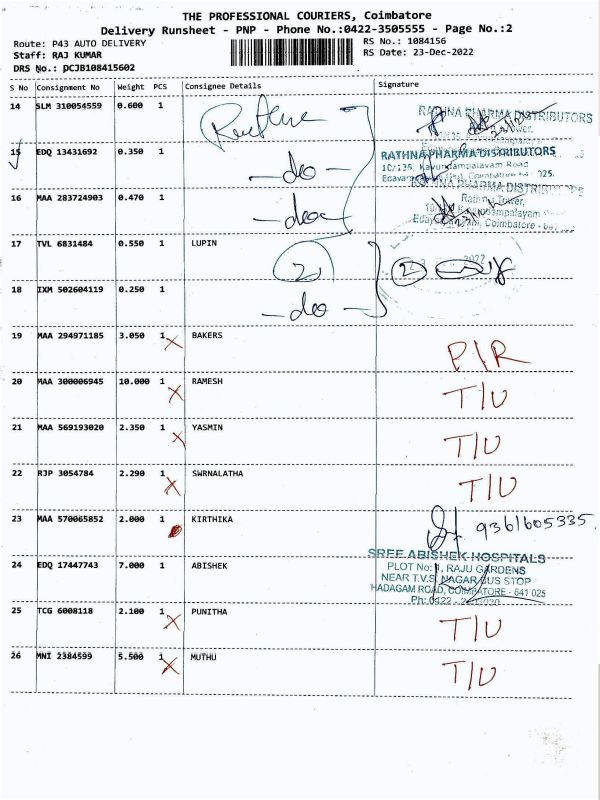 THE PROFESSIONAL COURIERS, Coimbatore
Delivery Runsheet - PNP - Phone No.:0422-3505555 - Page No.:2
Route: P43 AUTO DELIVERY RS No.: 1084156
Staff: RAJ KUMAR RS Date: 23-Dec-2022
DRS No.: DCJB108415602
S No Consignment No Weight PCS Consignee Details Signature
14 SLM 310054559 0.600 1 RATHNA PHARMA DISTRIBUTORS
15 EDQ 13431692 0.350 1 -do- RATHNA PHARMA DISTRIBUTORS
10/135, Kavundampalayam Road
16 MAA 283724903 0.470 1 -do- RATHNA PHARMA DISTRI
Rathna Tower,
Coimbatore
17 TVL 6831484 0.550 1 LUPIN
2 2 2022
18 IXM 502604119 0.250 1
-do-
19 MAA 294971185 3.050 1 X BAKERS P/R
20 MAA 300006945 10.000 1 X RAMESH T/U
21 MAA 569193020 2.350 1 X YASMIN T/U
22 RJP 3054784 2.290 1 X SWRNALATHA T/U
23 MAA 570065852 2.000 1 KIRTHIKA 9361605335
SREE ABISHEK HOSPITALS
24 EDQ 17447743 7.000 1 ABISHEK PLOT No: 1, RAJU GARDENS
NEAR T.V.S. NAGAR BUS STOP
HADAGAM ROAD, COIMBATORE - 641 025
Ph: 0422 -
25 TCG 6008118 2.100 1 X PUNITHA T/U
26 MNI 2384599 5.500 1 X MUTHU T/U